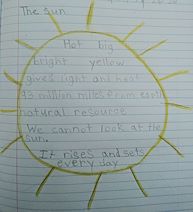 The Sun
Hot big
bright yellow
gives light and heat
93 million miles from earth
natural resource
We cannot look at the
sun.
It rises and sets
every day